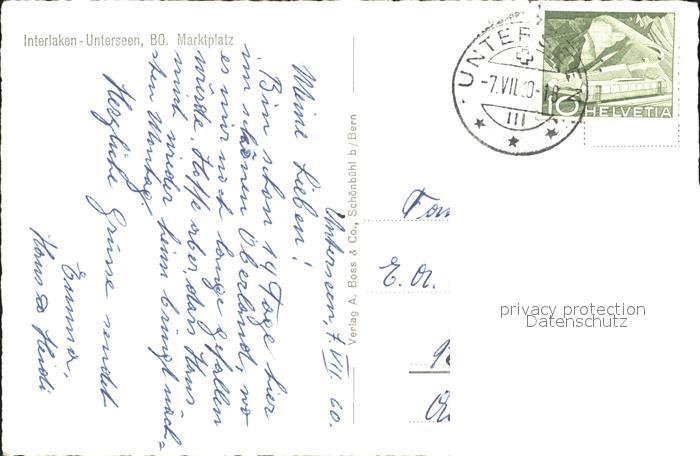 Interlaken - Unterseen, BO. Marktplatz
Unterseen, 7. VII. 60.
Meine Lieben!
Bin schon 14 Tage hier
im schönen Oberland, wo
es mir noch lange gefallen
würde. Hoffe aber, dass Hans
mich wieder heim bringt näch=
sten Montag.
Herzliche Grüsse sendet
Emma,
Hans & Heidi
Verlag A. Boss & Co., Schönbühl b/Bern
UNTERSEEN
-7.VII.60-18
III
10 HELVETIA
Fam
E. A.
privacy protection
Datenschutz